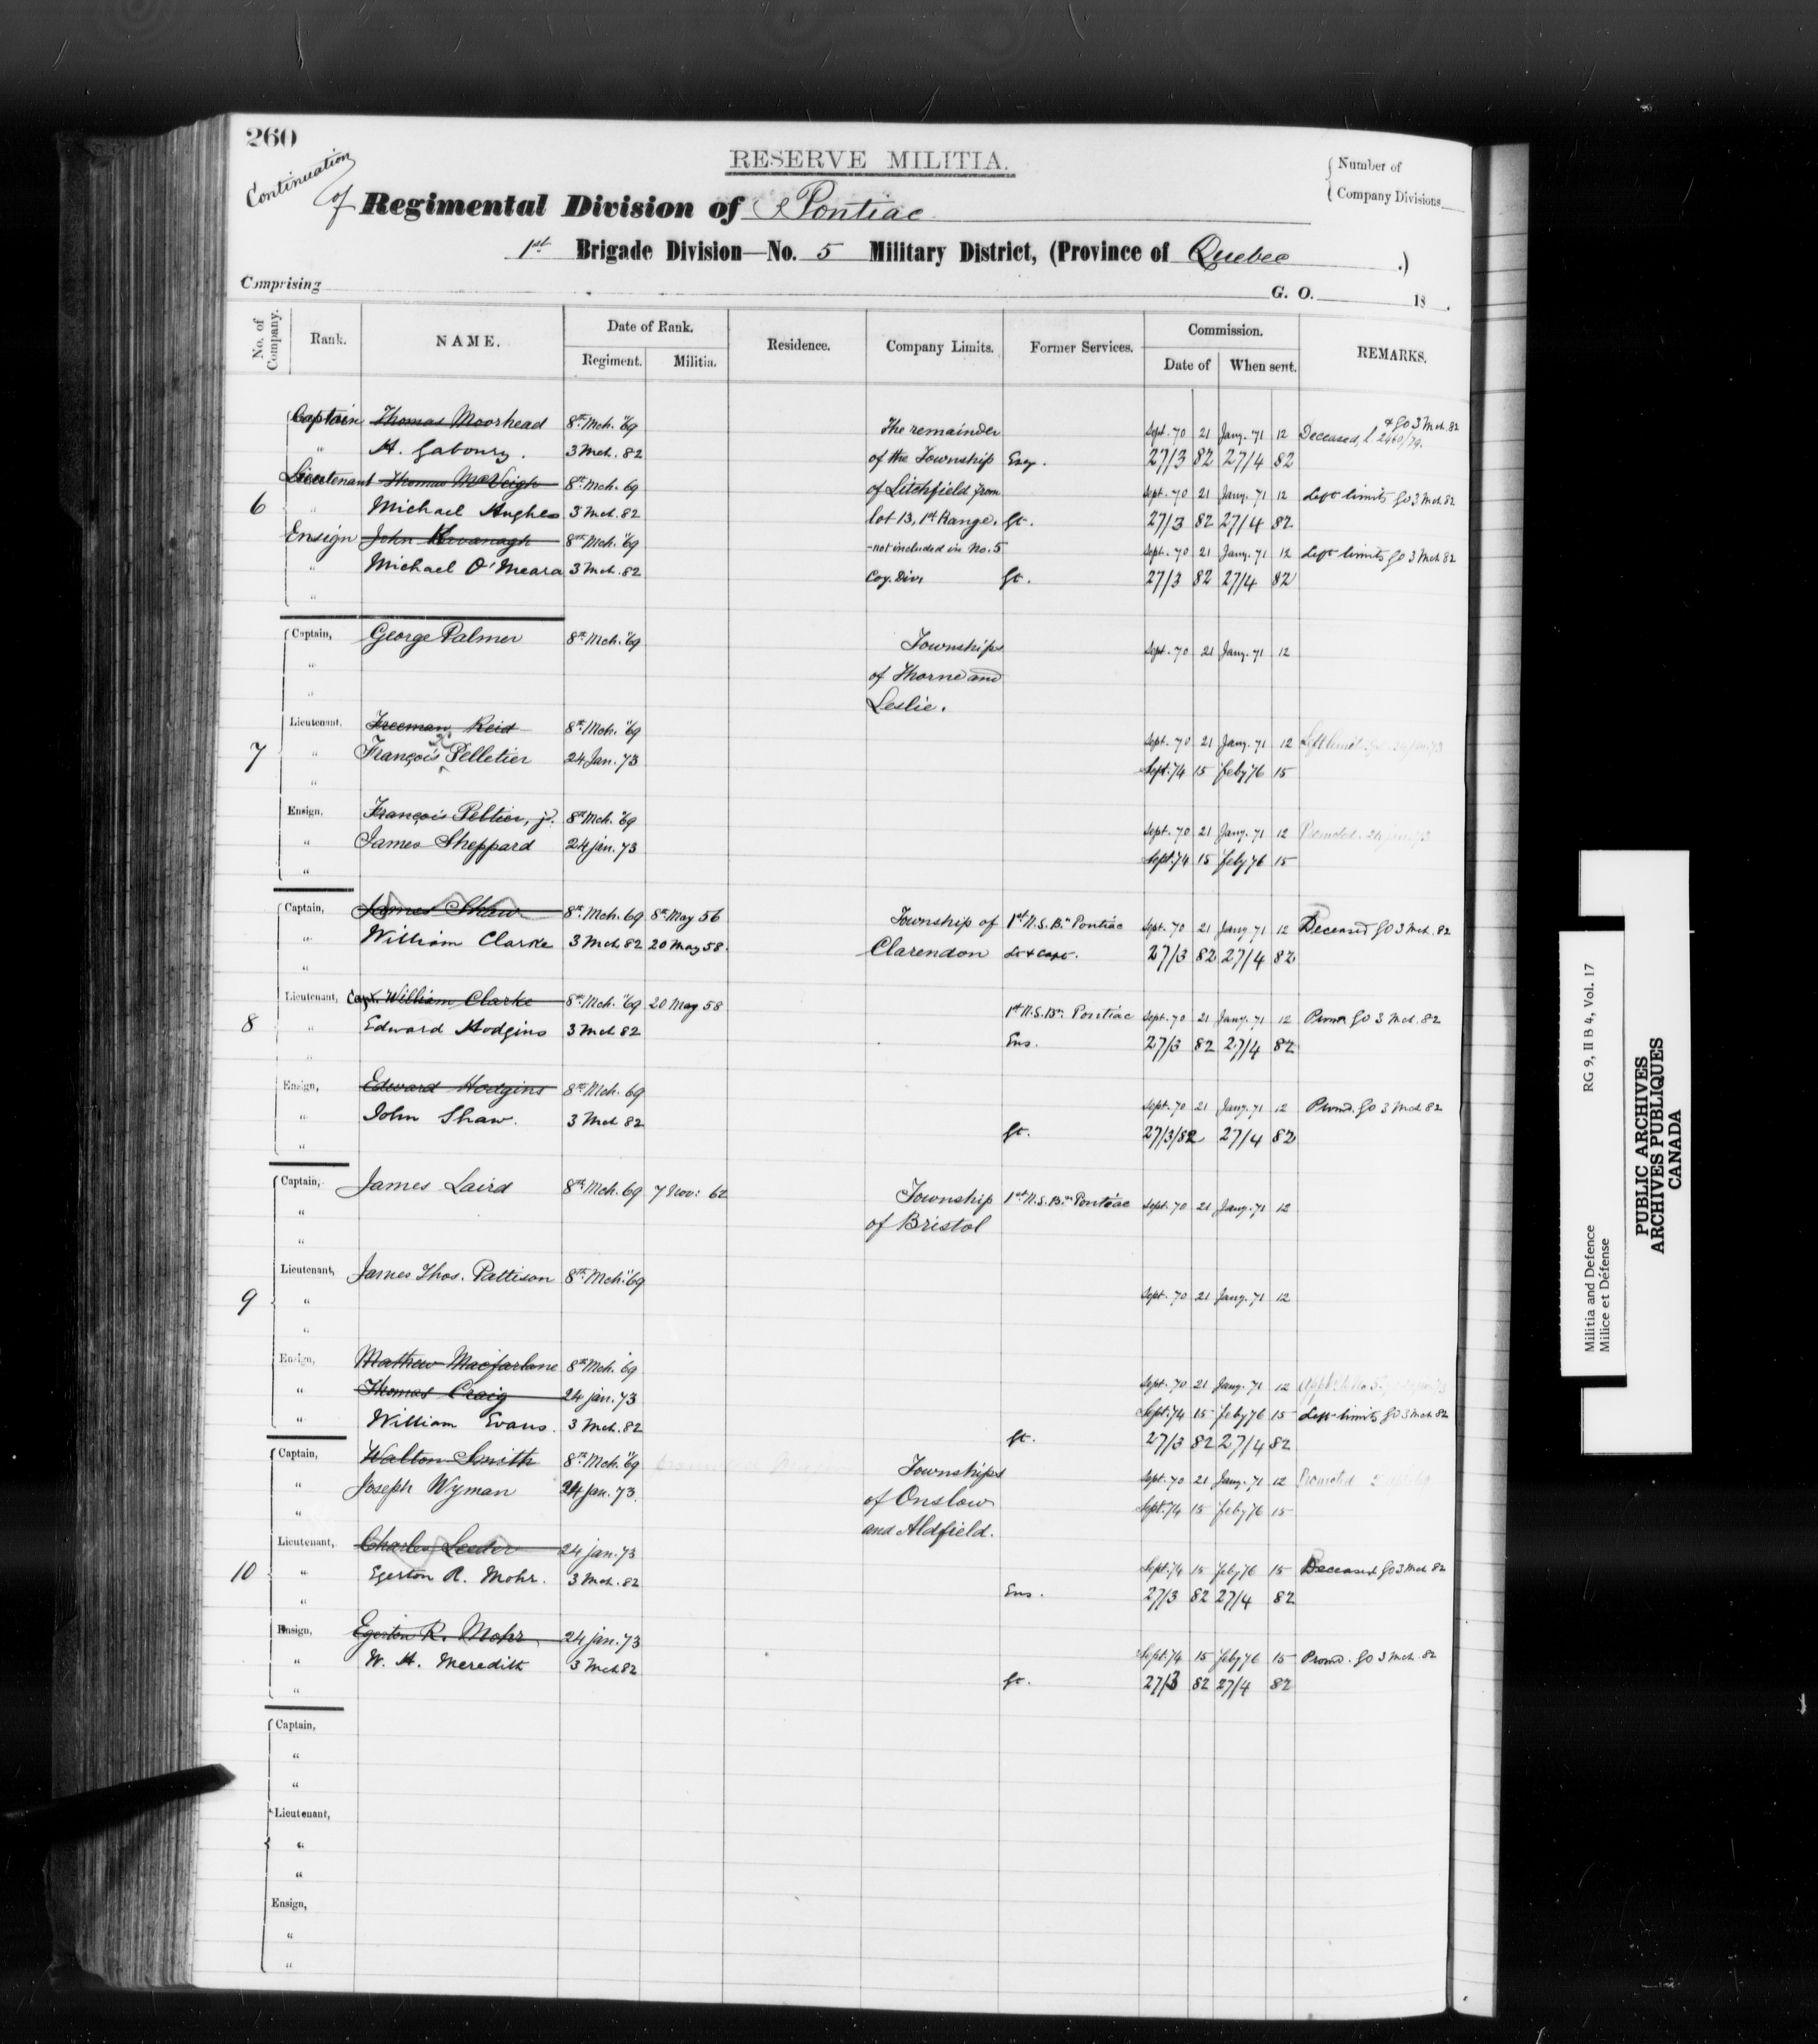 260
RESERVE MILITIA.
Continuation
of Regimental Division of Pontiac
{ Number of
Company Divisions
1st Brigade Division—No. 5 Military District, (Province of Quebec .)
Comprising G. O. 18 .
No. of Company. Rank. NAME. Date of Rank. Residence. Company Limits. Former Services. Commission. REMARKS.
Regiment. Militia. Date of When sent.
Captain Thomas Moorhead 8th Mch. 69 The remainder Sept. 70 21 Jany. 71 12 Deceased, L 2460/79. & GO 3 Mch. 82
" H. Gaboury. 3 Mch. 82 of the Township Esq. 27/3 82 27/4 82
Lieutenant Thomas McVeigh 8th Mch. 69 of Litchfield from Sept. 70 21 Jany. 71 12 Left limits GO 3 Mch 82
6 " Michael Hughes 3 Mch. 82 lot 13, 1st Range, Gt. 27/3 82 27/4 82
Ensign John Kavanagh 8th Mch. 69 -not included in No. 5 Sept. 70 21 Jany. 71 12 Left limits GO 3 Mch 82
" Michael O'Meara 3 Mch. 82 Coy. Divn Gt. 27/3 82 27/4 82
"
Captain, George Palmer 8th Mch. 69 Townships Sept. 70 21 Jany. 71 12
" of Thorne and
" Leslie.
Lieutenant, Freeman Reid 8th Mch. 69 Sept. 70 21 Jany. 71 12 Left limits
7 " François Pelletier 24 Jan. 73 Sept. 74 15 Feby 76 15
"
Ensign, François Peltier, jr. 8th Mch. 69 Sept. 70 21 Jany. 71 12 Promoted. 24 Jan. 73
" James Sheppard 24 jan. 73 Sept. 74 15 Feby 76 15
"
Captain, James Shaw 8th Mch. 69 8th May 56 Township of 1st N.S. Bn Pontiac Sept. 70 21 Jany. 71 12 Deceased GO 3 Mch. 82
" William Clarke 3 Mch 82 20 May 58. Clarendon Lt & Capt. 27/3 82 27/4 82
"
Lieutenant, Capt. William Clarke 8th Mch. 69 20 May 58 1st N.S. Bn. Pontiac Sept. 70 21 Jany. 71 12 Prom GO 3 Mch. 82
8 " Edward Hodgins 3 Mch 82 Ens. 27/3 82 27/4 82
"
Ensign, Edward Hodgins 8th Mch. 69 Sept. 70 21 Jany. 71 12 Promd. GO 3 Mch 82
" John Shaw. 3 Mch 82 Gt. 27/3/82 27/4 82
"
Captain, James Laird 8th Mch. 69 7 Nov: 62 Township 1st N.S. Bn Pontiac Sept. 70 21 Jany. 71 12
" of Bristol
"
Lieutenant, James Thos. Pattison 8th Mch. 69 Sept. 70 21 Jany. 71 12
9 "
"
Ensign, Mathew Macfarlane 8th Mch. 69 Sept. 70 21 Jany. 71 12
" Thomas Craig 24 jan. 73 Sept. 74 15 Feby 76 15 Left limits GO 3 Mch. 82
" William Evans. 3 Mch. 82 Gt. 27/3 82 27/4 82
Captain, Walton Smith 8th Mch. 69 Townships Sept. 70 21 Jany. 71 12 Promoted
" Joseph Wyman 24 Jan. 73. of Onslow Sept. 74 15 Feby 76 15
" and Aldfield.
Lieutenant, Charles Leeder 24 jan. 73 Sept. 74 15 Feby 76 15 Deceased GO 3 Mch 82
10 " Egerton R. Mohr. 3 Mch. 82 Ens. 27/3 82 27/4 82
"
Ensign, Egerton R. Mohr 24 jan. 73 Sept. 74 15 Feby 76 15 Promd. GO 3 Mch. 82
" W. H. Meredith 3 Mch 82 Gt. 27/3 82 27/4 82
"
Captain,
"
"
Lieutenant,
"
"
Ensign,
"
"
Militia and Defence RG 9, II B 4, Vol. 17
Milice et Défense
PUBLIC ARCHIVES
ARCHIVES PUBLIQUES
CANADA